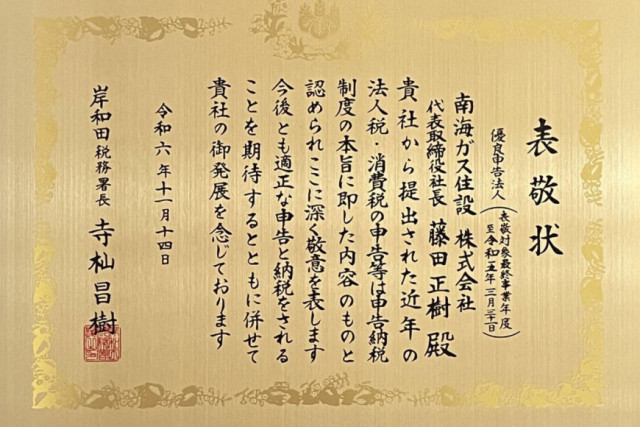 表敬状
優良申告法人
(表敬対象最終事業年度
至令和五年三月三十一日)
南海ガス住設 株式会社
代表取締役社長 藤田正樹 殿
貴社から提出された近年の
法人税・消費税の申告等は申告納税
制度の本旨に即した内容のものと
認められここに深く敬意を表します
今後とも適正な申告と納税をされる
ことを期待するとともに併せて
貴社の御発展を念じております
令和六年十一月十四日
岸和田税務署長 寺杣昌樹